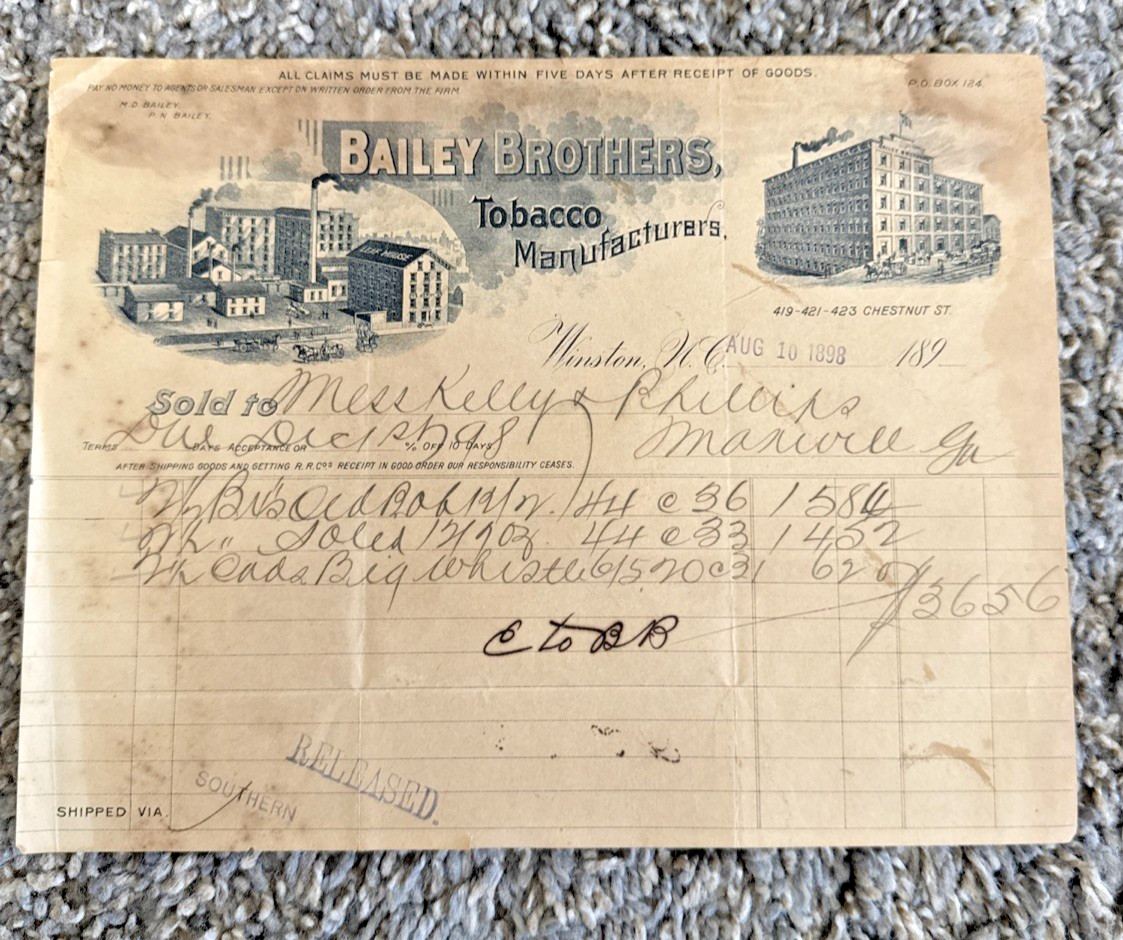 ALL CLAIMS MUST BE MADE WITHIN FIVE DAYS AFTER RECEIPT OF GOODS.
PAY NO MONEY TO AGENTS OR SALESMAN EXCEPT ON WRITTEN ORDER FROM THE FIRM.
P.O. BOX 124.
M.D. BAILEY.
P.N. BAILEY.
BAILEY BROTHERS,
Tobacco
Manufacturers,
419-421-423 CHESTNUT ST.
Winston, N.C. AUG 10 1898 189
Sold to Mess Kelly & Phillips
TERMS DAYS ACCEPTANCE OR % OFF 10 DAYS
Due Dec 1st/98
Ga
AFTER SHIPPING GOODS AND GETTING R.R. COS RECEIPT IN GOOD ORDER OUR RESPONSIBILITY CEASES.
Old Bob 44 c 36 1584
" 44 c 33 1452
Cads. Big Whistle 20 c 31 620
$3656
C to BB
RELEASED.
SOUTHERN
SHIPPED VIA.